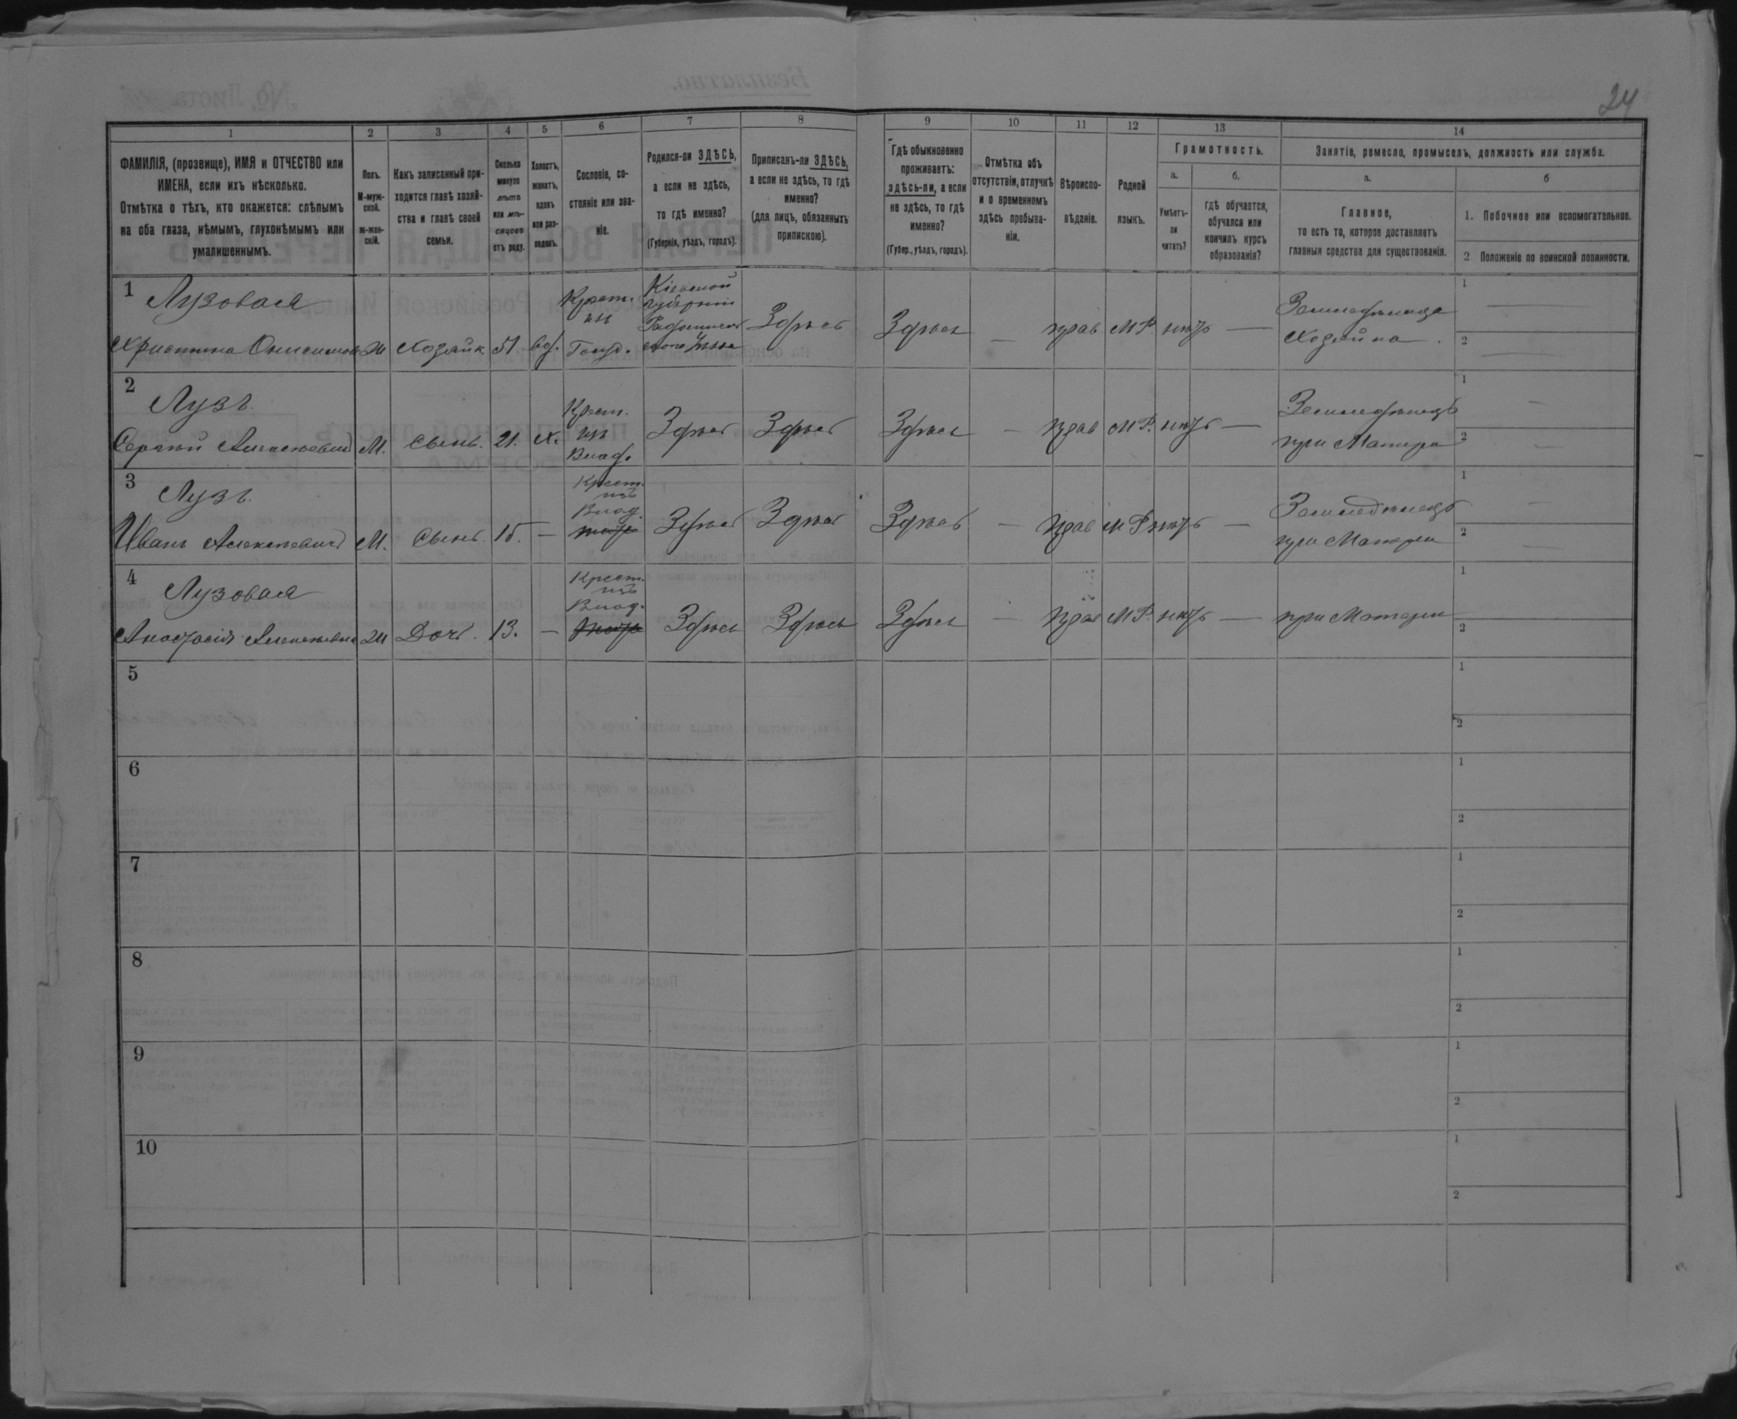 24
1 2 3 4 5 6 7 8 9 10 11 12 13 14
ФАМИЛІЯ, (прозвище), ИМЯ и ОТЧЕСТВО или
ИМЕНА, если ихъ нѣсколько.
Отмѣтка о тѣхъ, кто окажется: слѣпымъ
на оба глаза, нѣмымъ, глухонѣмымъ или
умалишеннымъ.
Полъ.
М-муж-
ской.
ж-жен-
скій.
Какъ записанный при-
ходится главѣ хозяй-
ства и главѣ своей
семьи.
Сколько
минуло
лѣтъ
или мѣ-
сяцевъ
отъ роду.
Холостъ,
женатъ,
вдовъ
или раз-
веденъ.
Сословіе, со-
стояніе или зва-
ніе.
Родился-ли ЗДѢСЬ,
а если не здѣсь,
то гдѣ именно?
(Губернія, уѣздъ, городъ).
Приписанъ-ли ЗДѢСЬ,
а если не здѣсь, то гдѣ
именно?
(для лицъ, обязанныхъ
припискою).
Гдѣ обыкновенно
проживаетъ:
здѣсь-ли, а если
не здѣсь, то гдѣ
именно?
(Губер., уѣздъ, городъ).
Отмѣтка объ
отсутствіи, отлучкѣ
и о временномъ
здѣсь пребыва-
ніи.
Вѣроиспо-
вѣданіе.
Родной
языкъ.
Грамотность.
а.
Умѣетъ-
ли
читать?
б.
гдѣ обучается,
обучался или
кончилъ курсъ
образованія?
Занятіе, ремесло, промыселъ, должность или служба.
а.
Главное,
то есть то, которое доставляетъ
главныя средства для существованія.
б
1. Побочное или вспомогательное.
2 Положеніе по воинской повинности.
1
Лузовая
Христина
Ж Хозяйк 51 вд.
Крест.
изъ
Госуд.
Кіевской
губерніи
Здѣсь Здѣсь — прав М Р. нѣтъ —
Хозяйка.
1
2
2
Лузъ
Сергѣй Алексѣевичъ М. Сынъ. 21. Х.
Крест.
изъ
Влад.
Здѣсь Здѣсь Здѣсь — прав М Р. нѣтъ —
Земледѣлецъ
при Матери
1
2
3
Лузъ
Иванъ Алексѣевичъ М. Сынъ. 15. —
Крест.
изъ
Влад.
Здѣсь Здѣсь Здѣсь — прав М Р нѣтъ —
Земледѣлецъ
при Матери
1
2
4
Лузовая
Анастасія Алексѣевна Ж Дочь. 13. —
Крест.
изъ
Влад.
Здѣсь Здѣсь Здѣсь — прав М Р. нѣтъ — при Матери
1
2
5
1
2
6
1
2
7
1
2
8
1
2
9
1
2
10
1
2